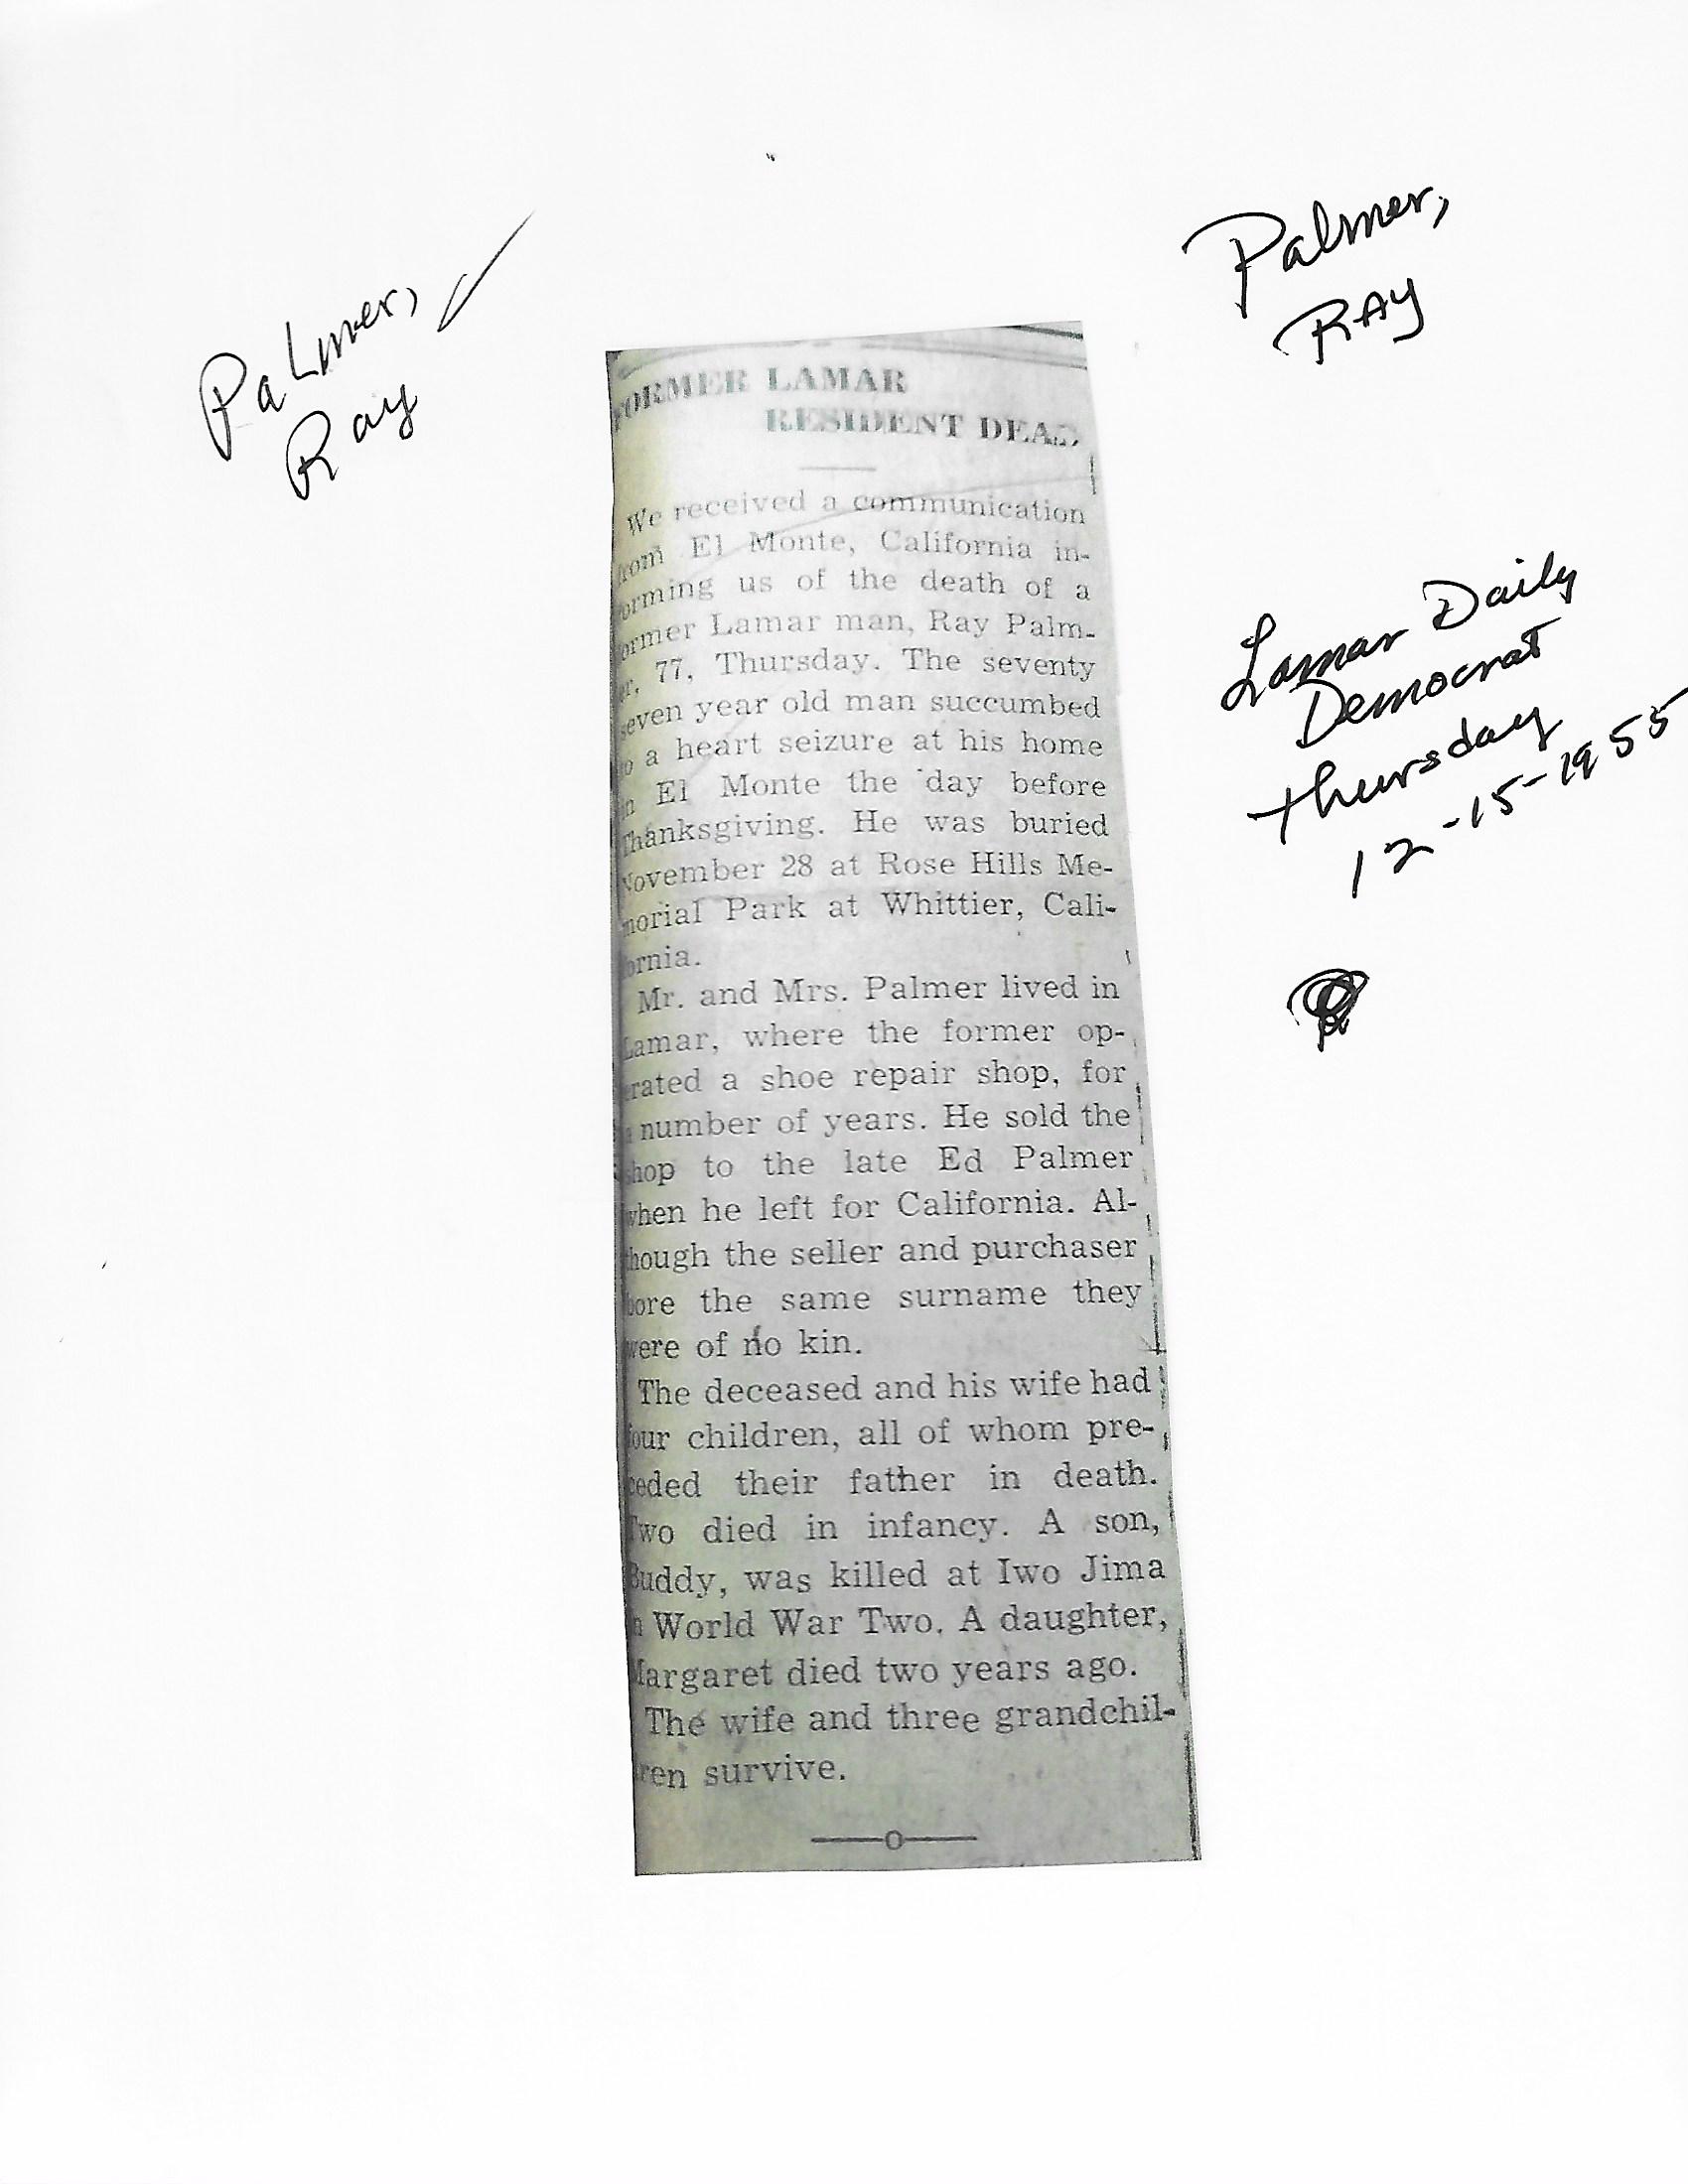 Palmer,
Ray
Palmer,
RAY
Lamar Daily
Democrat
Thursday
12-15-1955
FORMER LAMAR
RESIDENT DEAD
We received a communication
from El Monte, California in-
forming us of the death of a
former Lamar man, Ray Palm-
er, 77, Thursday. The seventy
seven year old man succumbed
to a heart seizure at his home
in El Monte the day before
Thanksgiving. He was buried
November 28 at Rose Hills Me-
morial Park at Whittier, Cali-
fornia.
Mr. and Mrs. Palmer lived in
Lamar, where the former op-
erated a shoe repair shop, for
a number of years. He sold the
shop to the late Ed Palmer
when he left for California. Al-
though the seller and purchaser
bore the same surname they
were of no kin.
The deceased and his wife had
four children, all of whom pre-
ceded their father in death.
Two died in infancy. A son,
Buddy, was killed at Iwo Jima
in World War Two. A daughter,
Margaret died two years ago.
The wife and three grandchil-
ren survive.